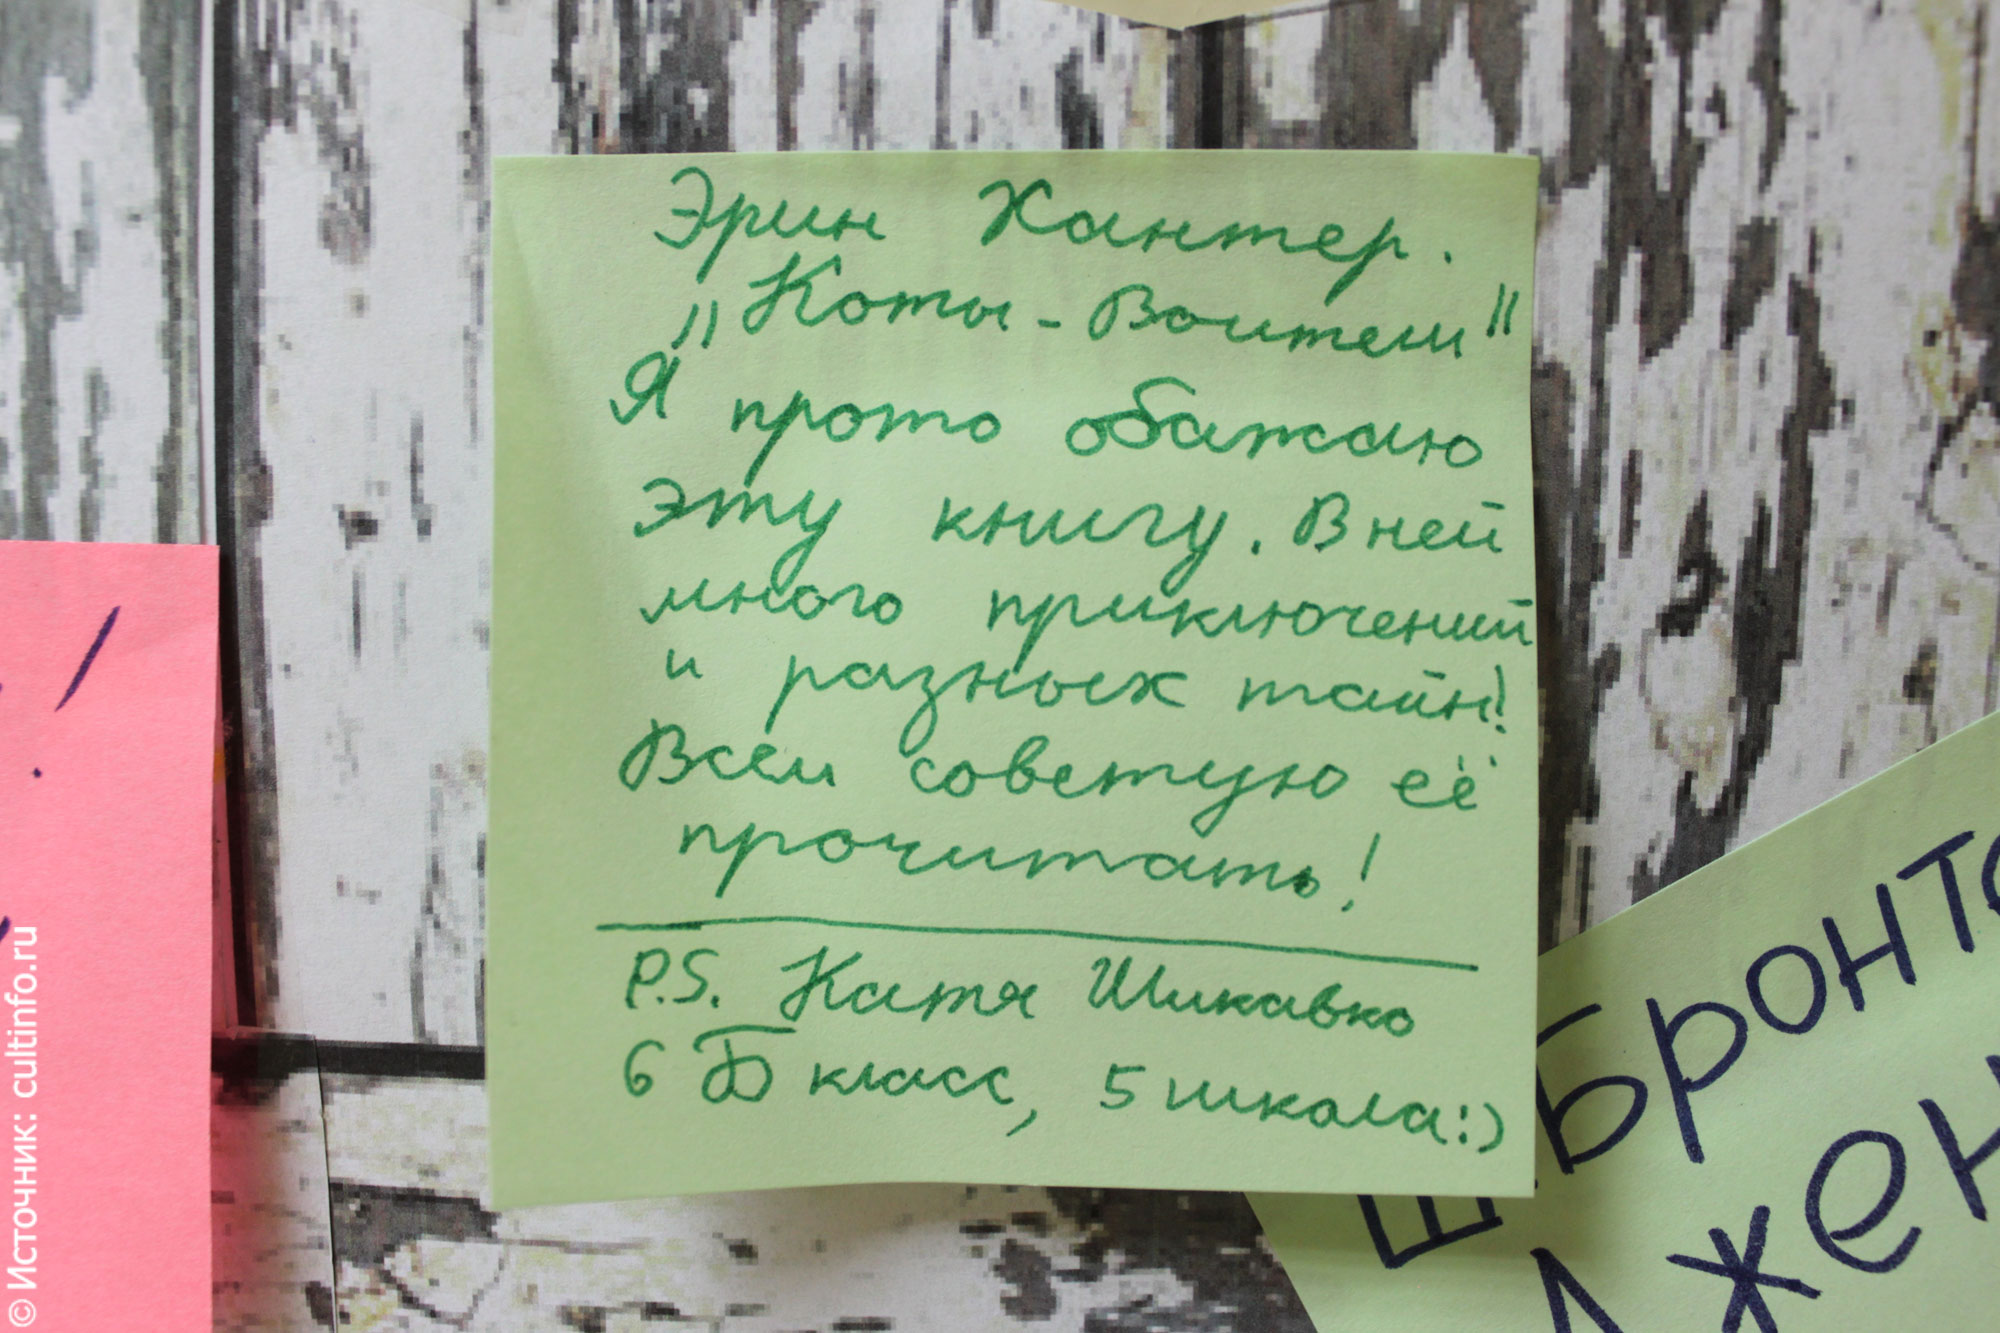 Эрин Хантер.
"Коты-Воители"
Я прото обажаю
эту книгу. В ней
много приключений
и разных тайн!
Всем советую её
прочитать!
P.S. Катя Шикавко
6 Б класс, 5 школа:)
!
Ш. Бронте
Джен
© Источник: cultinfo.ru